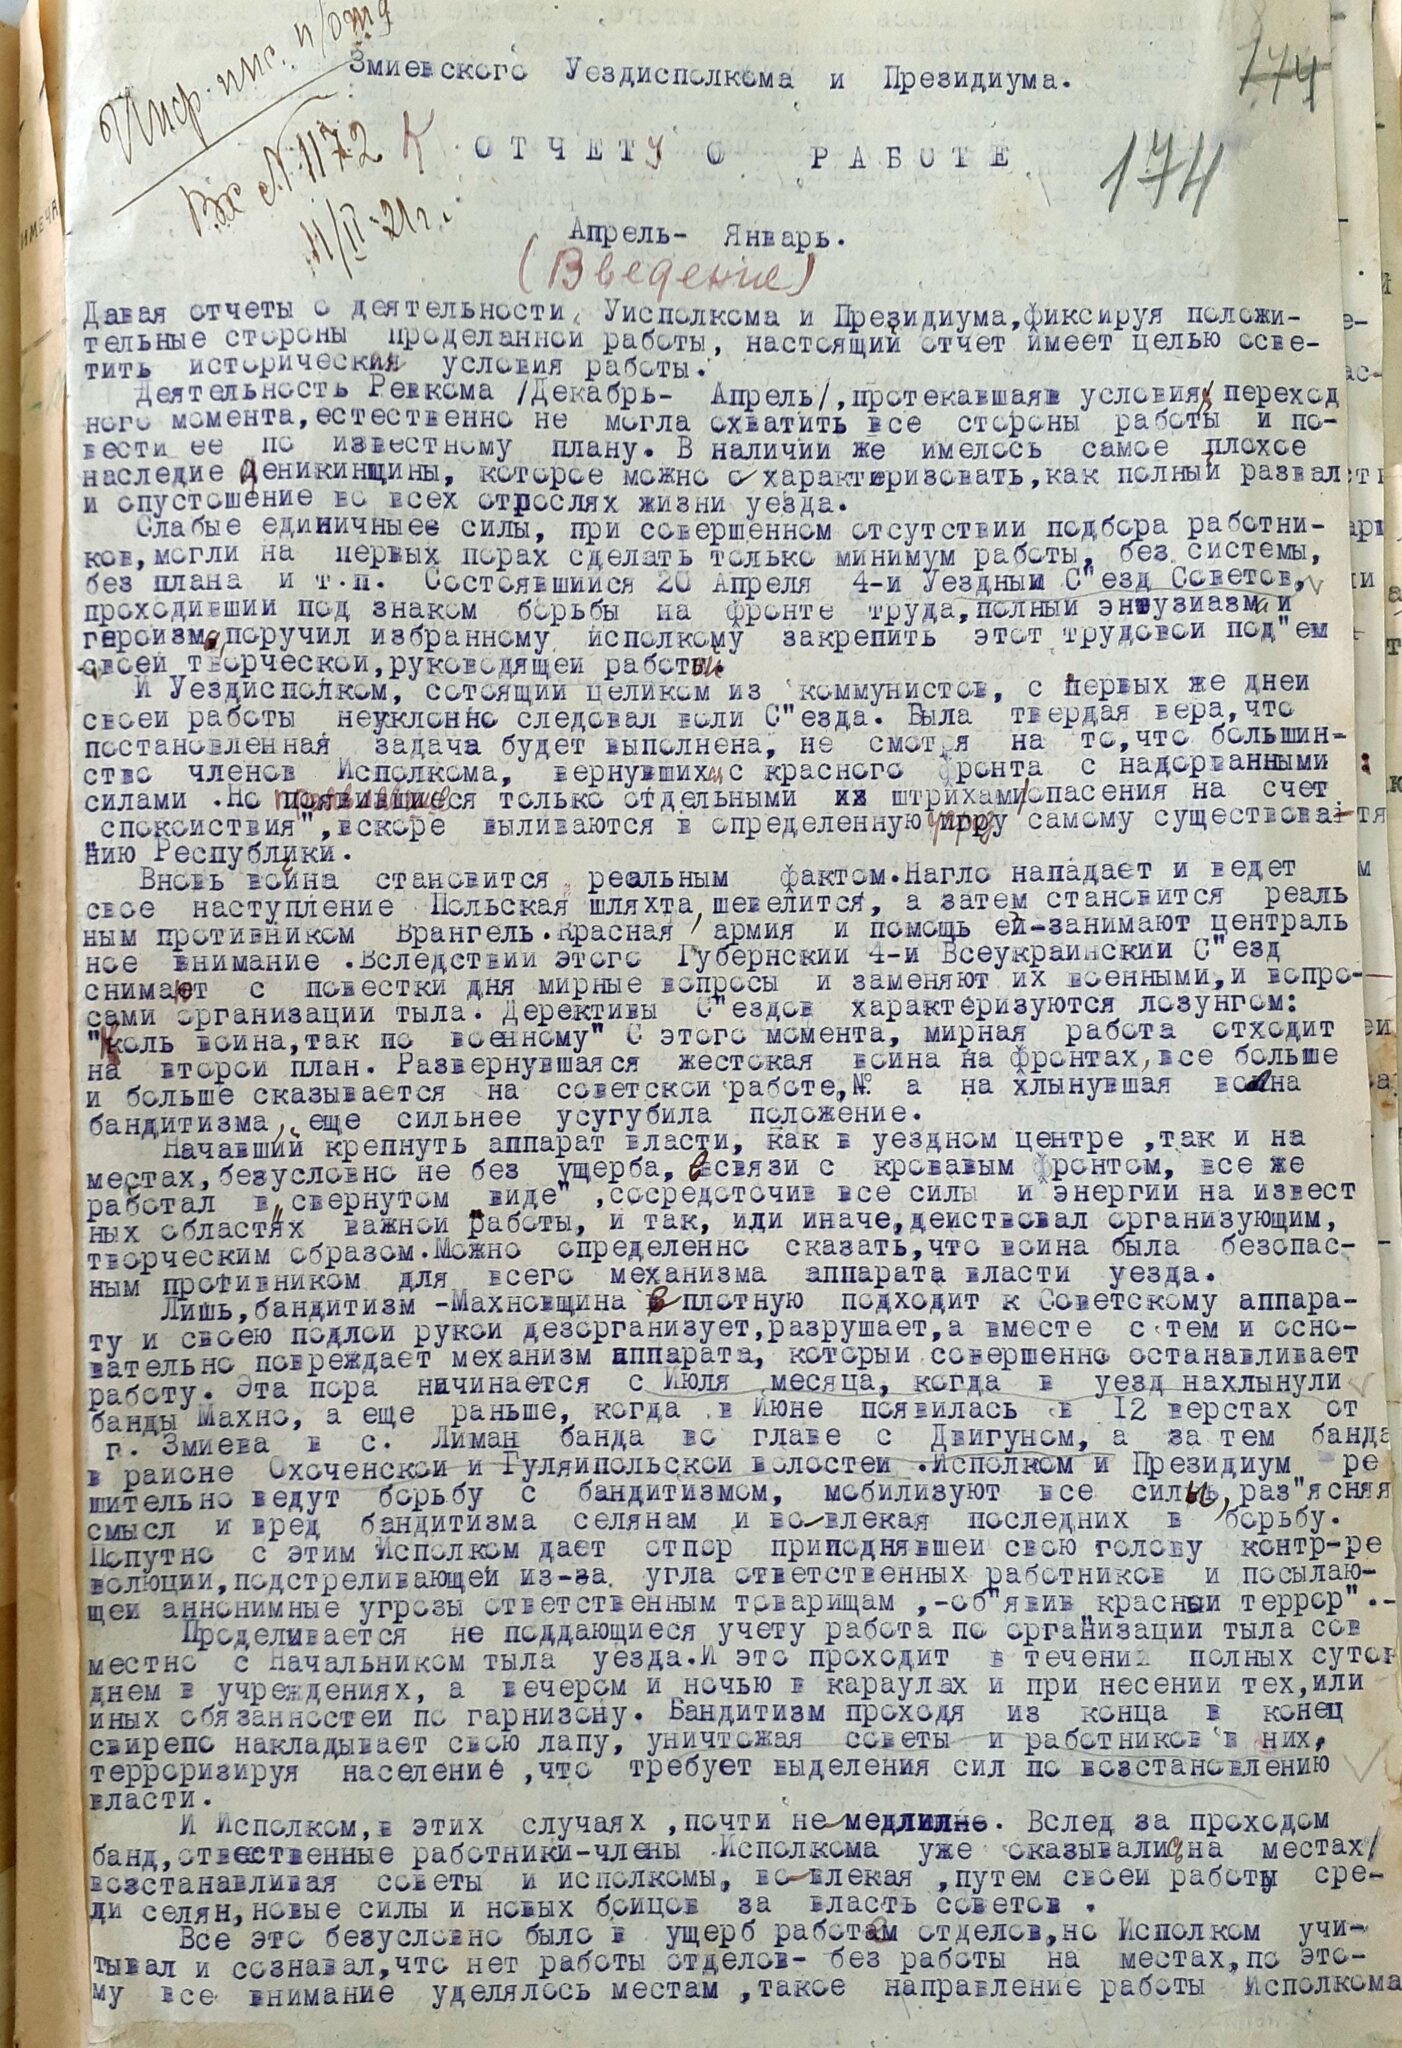 Инф. инс. п/отд
Вх № 1172
11/II-21г.
174
174
Змиевского Уездисполкома и Президиума.
К ОТЧЕТУ О РАБОТЕ
Апрель- Январь.
(Введение)
Давая отчеты о деятельности, Уисполкома и Президиума,фиксируя положи-
тельные стороны проделанной работы, настоящий отчет имеет целью осве-
тить исторические условия работы.
Деятельность Ревкома /Декабрь- Апрель/,протекавшаяв условиях переход
ного момента,естественно не могла охватить все стороны работы и по-
вести ее по известному плану. В наличии же имелось самое плохое
наследие Деникинщины, которое можно охарактиризовать,как полный развал
и опустошение во всех отрослях жизни уезда.
Слабые единичныее силы, при совершенном отсутствии подбора работни-
ков,могли на первых порах сделать только минимум работы, без системы,
без плана и т.п. Состоявшийся 20 Апреля 4-й Уездный С"езд Советов,
проходивший под знаком борьбы на фронте труда,полный энтузиазма и
героизма,поручил избранному исполкому закрепить этот трудовой под"ем
своей творческой,руководящей работой.
И Уездисполком, сотоящий целиком из коммунистов, с первых же дней
своей работы неуклонно следовал воли С"езда. Была твердая вера,что
постановленная задача будет выполнена, не смотря на то,что большин-
ство членов Исполкома, вернувшихся с красного фронта с надорванными
силами .Но проявившиеся только отдельными их штрихами опасения на счет
"спокойствия",вскоре выливаются в определенную угрозу самому существова-
нию Республики.
Вновь война становится реальным фактом.Нагло нападает и ведет
свое наступление Польская шляхта, шевелится, а затем становится реаль
ным противником Врангель.Красная армия и помощь ей-занимают централь
ное внимание .Вследствии этого Губернский 4-й Всеукраинский С"езд
снимают с повестки дня мирные вопросы и заменяют их военными,и вопро-
сами организации тыла. Дерективы С"ездов характеризуются лозунгом:
"Коль война,так по военному" С этого момента, мирная работа отходит
на второй план. Развернувшаяся жестокая война на фронтах,все больше
и больше сказывается на советской работе,№ а на хлынувшая волна
бандитизма, еще сильнее усугубила положение.
Начавший крепнуть аппарат власти, как в уездном центре ,так и на
местах,безусловно не без ущерба, в связи с кровавым фронтом, все же
работал в "свернутом виде" ,сосредоточив все силы и энергии на извест
ных областях важной работы, и так, или иначе,действовал организующим,
творческим образом.Можно определенно сказать,что война была безопас-
ным противником для всего механизма аппарата власти уезда.
Лишь,бандитизм -Махновщина в плотную подходит к Советскому аппара-
ту и своею подлой рукой дезорганизует,разрушает,а вместе с тем и осно-
вательно повреждает механизм аппарата, который совершенно останавливает
работу. Эта пора начинается с Июля месяца, когда в уезд нахлынули
банды Махно, а еще раньше, когда в Июне появилась в 12 верстах от
г. Змиева в с. Лиман банда во главе с Двигуном, а за тем банда
в районе Охоченской и Гуляйпольской волостей .Исполком и Президиум ре
шительно ведут борьбу с бандитизмом, мобилизуют все силы, раз"ясняя
смысл и вред бандитизма селянам и вовлекая последних в борьбу.
Попутно с этим Исполком дает отпор приподнявшей свою голову контр-ре
волюции,подстреливающей из-за угла ответственных работников и посылаю-
щей аннонимные угрозы ответственным товарищам ,-об"явив "красный террор".-
Проделывается не поддающиеся учету работа по организации тыла сов
местно с Начальником тыла уезда.И это проходит в течении полных суток
днем в учреждениях, а вечером и ночью в караулах и при несении тех,или
иных обязанностей по гарнизону. Бандитизм проходя из конца в конец
свирепо накладывает свою лапу, уничтожая советы и работников в них,
терроризируя население ,что требует выделения сил по возстановлению
власти.
И Исполком,в этих случаях ,почти не медлил. Вслед за проходом
банд,отвественные работники-члены Исполкома уже оказывались на местах
возстанавливая советы и исполкомы, вовлекая ,путем своей работы сре-
ди селян,новые силы и новых бойцов за власть советов .
Все это безусловно было в ущерб работам отделов,но Исполком учи-
тывал и сознавал,что нет работы отделов- без работы на местах,по это-
му все внимание уделялось местам ,такое направление работы Исполкома